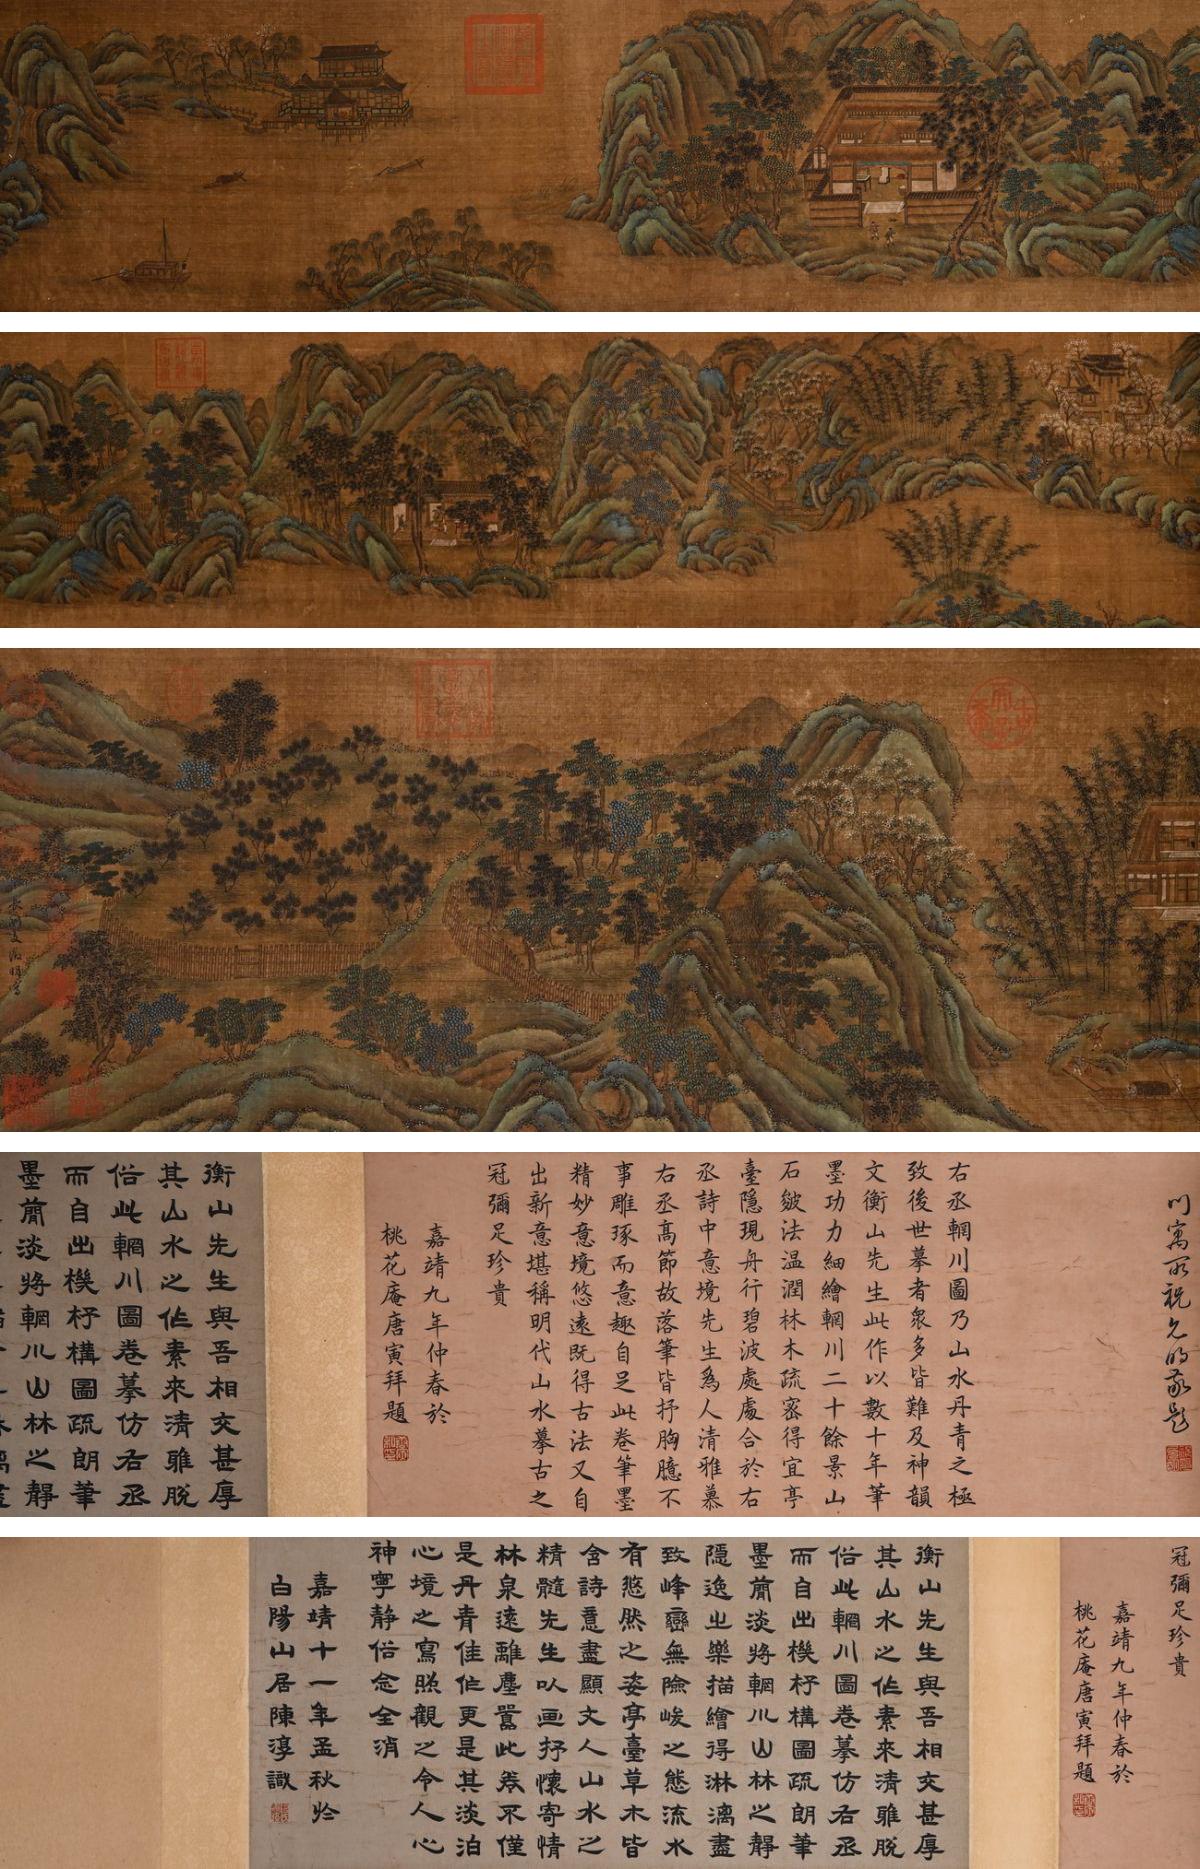 長洲文徵明寫
門寓所祝允明敬題
右丞輞川圖乃山水丹青之極
致後世摹者衆多皆難及神韻
文衡山先生此作以數十年筆
墨功力細繪輞川二十餘景山
石皴法温潤林木疏密得宜亭
臺隱現舟行碧波處處合於右
丞詩中意境先生爲人清雅慕
右丞高節故落筆皆抒胸臆不
事雕琢而意趣自足此卷筆墨
精妙意境悠遠既得古法又自
出新意堪稱明代山水摹古之
冠彌足珍貴
嘉靖九年仲春於
桃花庵唐寅拜題
衡山先生與吾相交甚厚
其山水之作素來清雅脱
俗此輞川圖卷摹仿右丞
而自出機杼構圖疏朗筆
墨簡淡將輞川山林之靜
冠彌足珍貴
嘉靖九年仲春於
桃花庵唐寅拜題
衡山先生與吾相交甚厚
其山水之作素來清雅脱
俗此輞川圖卷摹仿右丞
而自出機杼構圖疏朗筆
墨簡淡將輞川山林之靜
隱逸之樂描繪得淋漓盡
致峰巒無險峻之態流水
有悠然之姿亭臺草木皆
含詩意盡顯文人山水之
精髓先生以画抒懷寄情
林泉遠離塵囂此卷不僅
是丹青佳作更是其淡泊
心境之寫照觀之令人心
神寧静俗念全消
嘉靖十一年孟秋於
白陽山居陳淳識